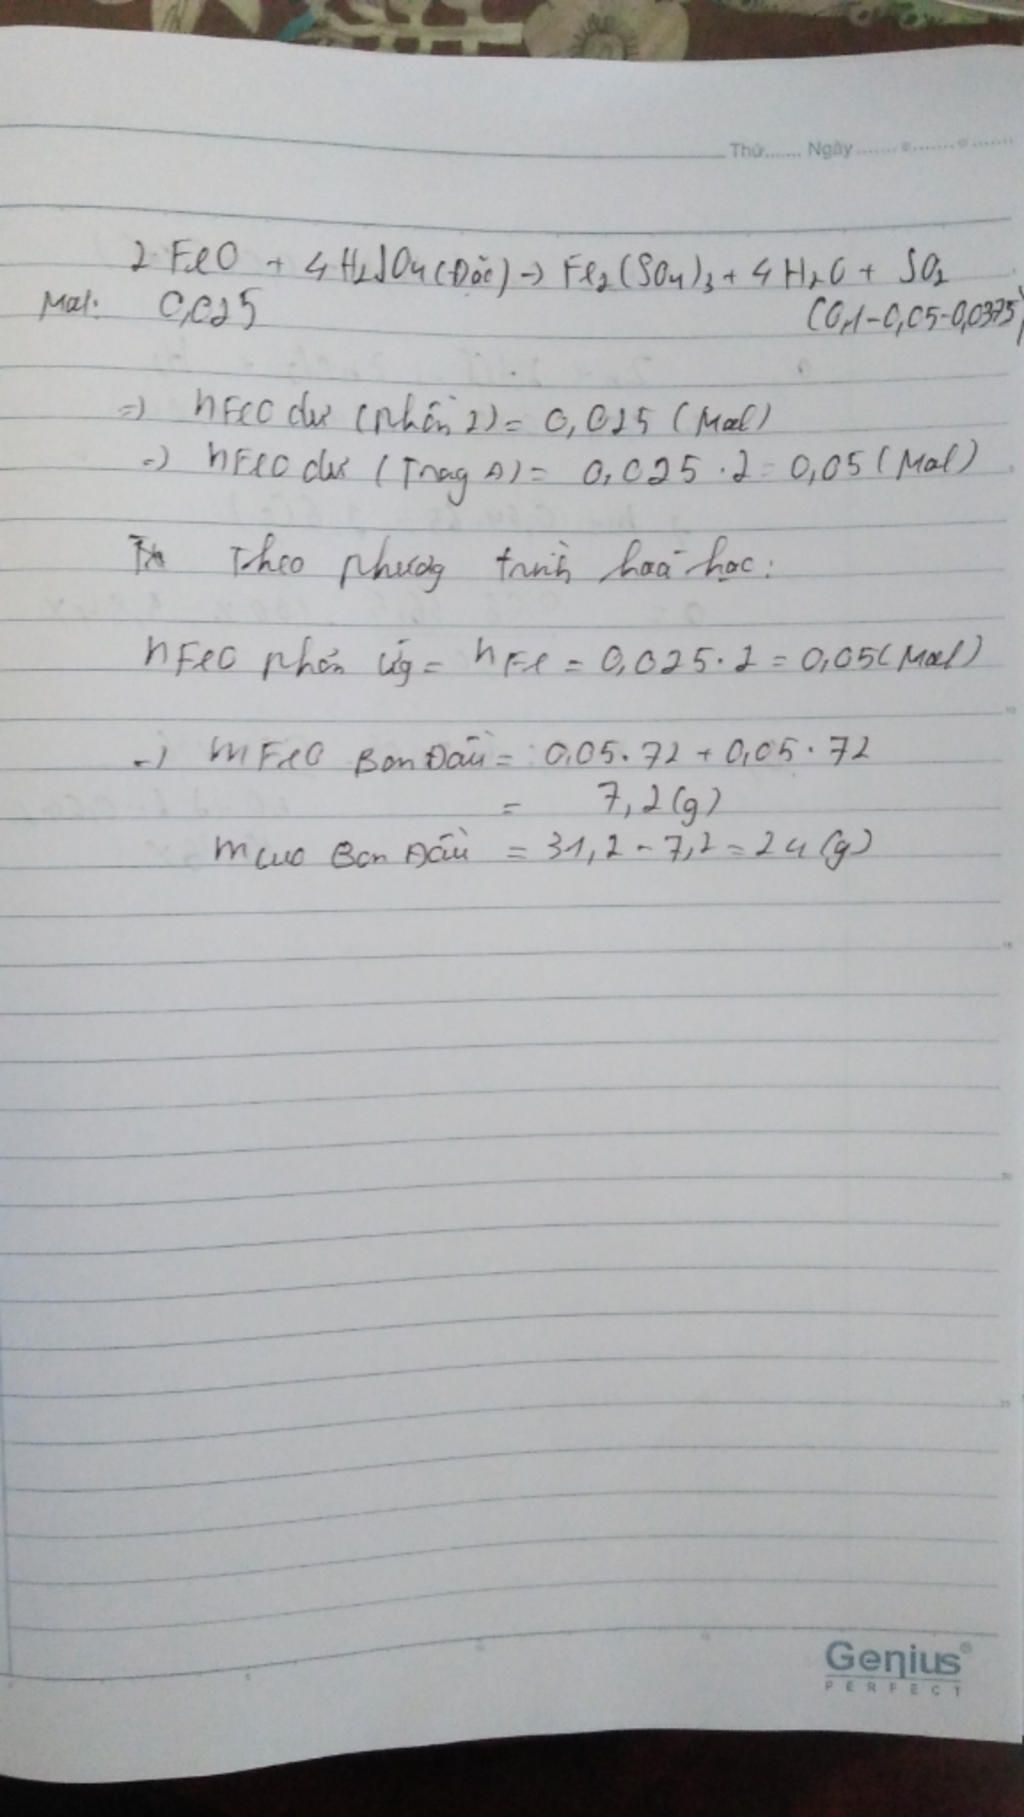 Thứ....... Ngày.......
2 FeO + 4 H₂SO₄ (Đặc) → Fe₂(SO₄)₃ + 4 H₂O + SO₂
Mol: 0,025 (0,1-0,05-0,0375)
=) nFeO dư (phần 2) = 0,025 (Mol)
=) nFeO dư (Trong A) = 0,025 . 2 = 0,05 (Mol)
Theo phương trình hoá học:
nFeO phản ứg = nFe = 0,025 . 2 = 0,05 (Mol)
=) mFeO Ban Đầu = 0,05 . 72 + 0,05 . 72
= 7,2 (g)
mCuO Ban Đầu = 31,2 - 7,2 = 24 (g)
Genius®
PERFECT